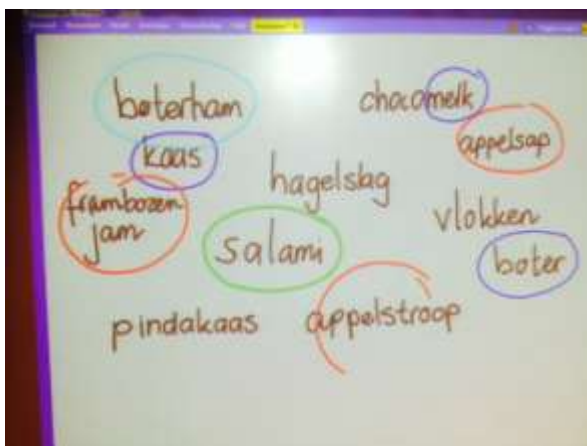 boterham
chocomelk
kaas
appelsap
hagelslag
frambozen
jam
vlokken
salami
boter
pindakaas
appelstroop